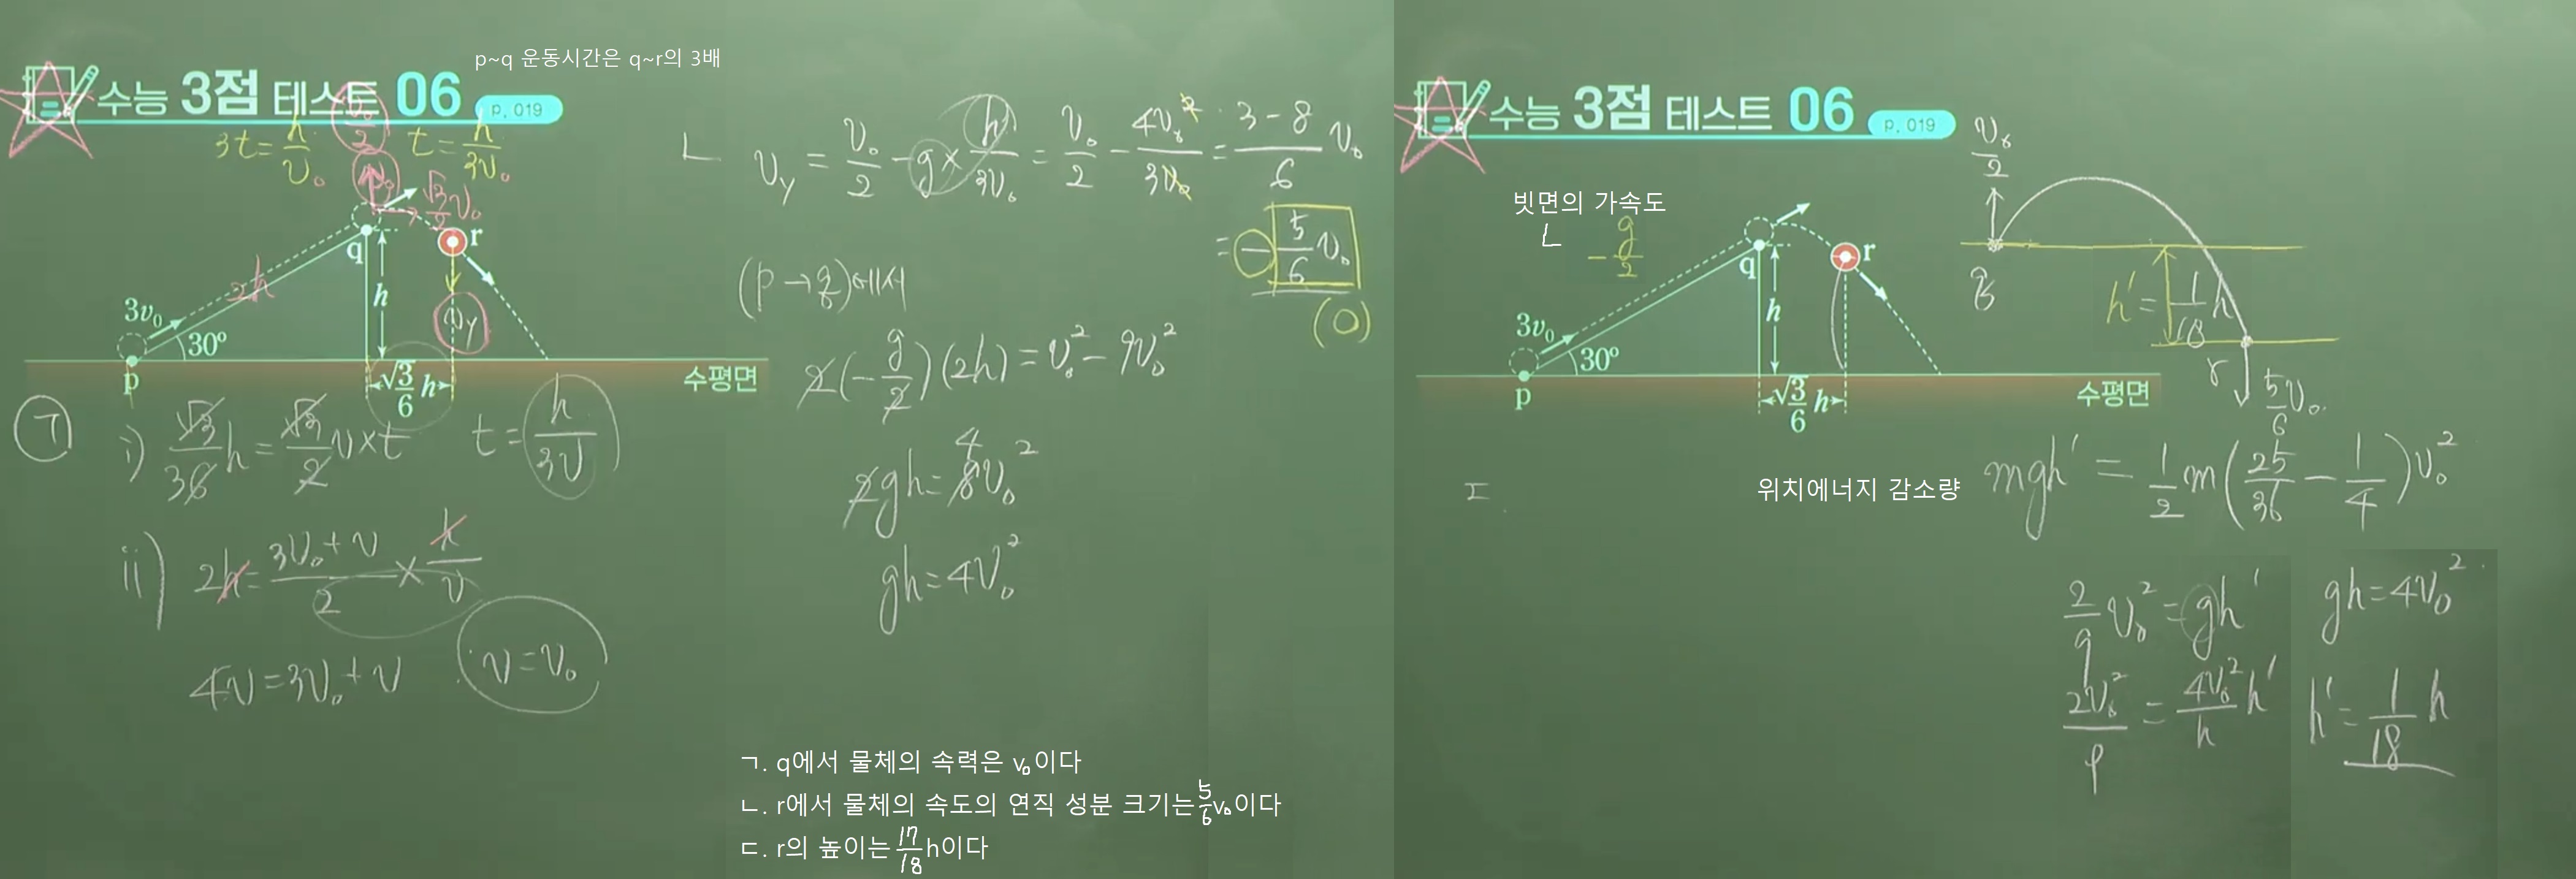 p~q 운동시간은 q~r의 3배
수능 3점 테스트 06 p. 019
3t = h/v₀ t = h/3v₀
v₀/2
v₀
√3/2 v₀
q r
2h
h
v_y
3v₀
30°
p
√3/6 h
수평면
ㄱ
i) √3/36 h = √3/2 v × t t = h/3v
ii) 2h = (3v₀ + v)/2 × h/v
4v = 3v₀ + v v = v₀
ㄴ v_y = v₀/2 - g × h/3v₀ = v₀/2 - 4v₀²/3v₀ = (3 - 8)/6 v₀
= - 5/6 v₀
(0)
(p → q)에서
2(-g/2)(2h) = v₀² - 9v₀²
2gh = 8v₀² 4
gh = 4v₀²
ㄱ. q에서 물체의 속력은 v₀이다
ㄴ. r에서 물체의 속도의 연직 성분 크기는 5/6 v₀이다
ㄷ. r의 높이는 17/18 h이다
수능 3점 테스트 06 p. 019
빗면의 가속도
ㄴ -g/2
q r
h
3v₀
30°
p
√3/6 h
수평면
v₀/2
q
h' = 1/18 h
r
5/6 v₀
ㄷ.
위치에너지 감소량 mgh' = 1/2 m(25/36 - 1/4)v₀²
2/9 v₀² = gh' gh = 4v₀²
2v₀²/9 = 4v₀²/h h' h' = 1/18 h